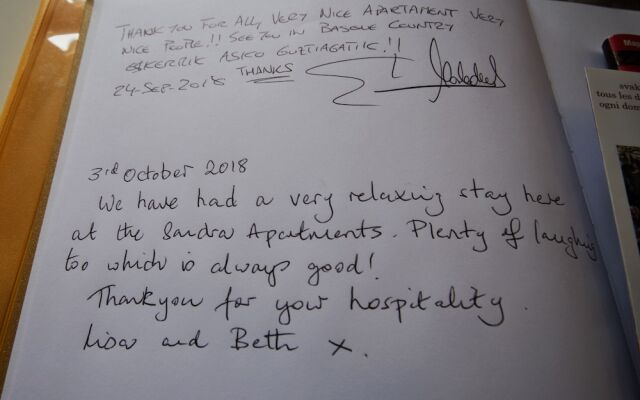 THANK YOU FOR ALL, VERY NICE APARTAMENT VERY
NICE PEOPLE!! SEE YOU IN BASQUE COUNTRY
ESKERRIK ASKO GUZTIAGATIK!!
24-SEP-2018 THANKS
3rd October 2018
We have had a very relaxing stay here
at the Sandra Apartments. Plenty of laughing
too which is always good!
Thankyou for your hospitality.
Lisa and Beth x.
svak
tous les d
ogni dom